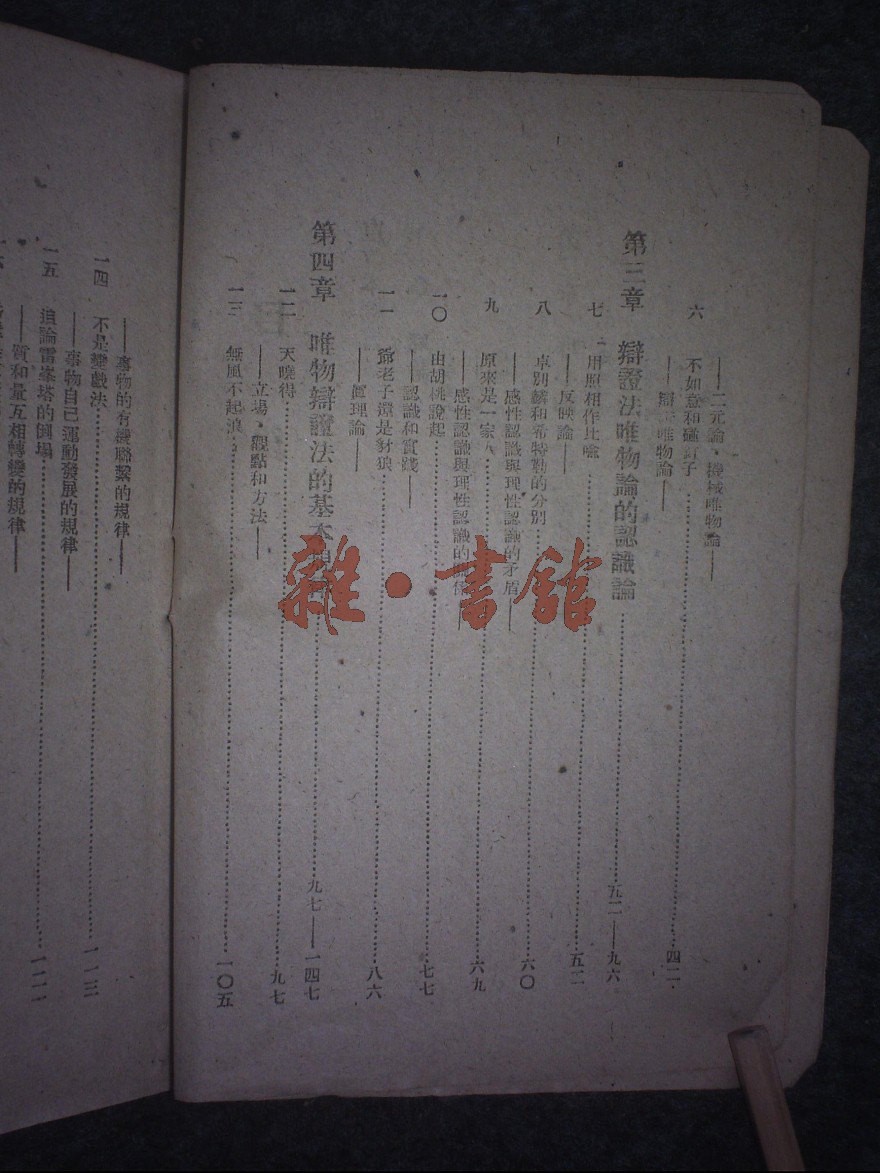 ——二元論、機械唯物論——
六 不如意和碰釘子 四二
——辯 唯物論——
第三章 辯證法唯物論的認識論 五二——九六
七 用照相作比喩 五二
——反映論——
八 卓別麟和希特勒的分別 六〇
——感性認識與理性認識的矛盾——
九 原來是一家人 六九
——感性認識與理性認識的
一〇 由胡桃說起 七七
——認識和實踐——
一一 爺老子還是豺狼 八六
——眞理論——
第四章 唯物辯證法的基本 九七——一四七
一二 天曉得 九七
——立場、觀點和方法——
一三 無風不起浪 一〇五
——事物的有機聯繫的規律——
一四 不是變戲法 一一三
——事物自己運動發展的規律——
一五 追論雷峯塔的倒塌
——質和量互相轉變的規律——
雜·書館